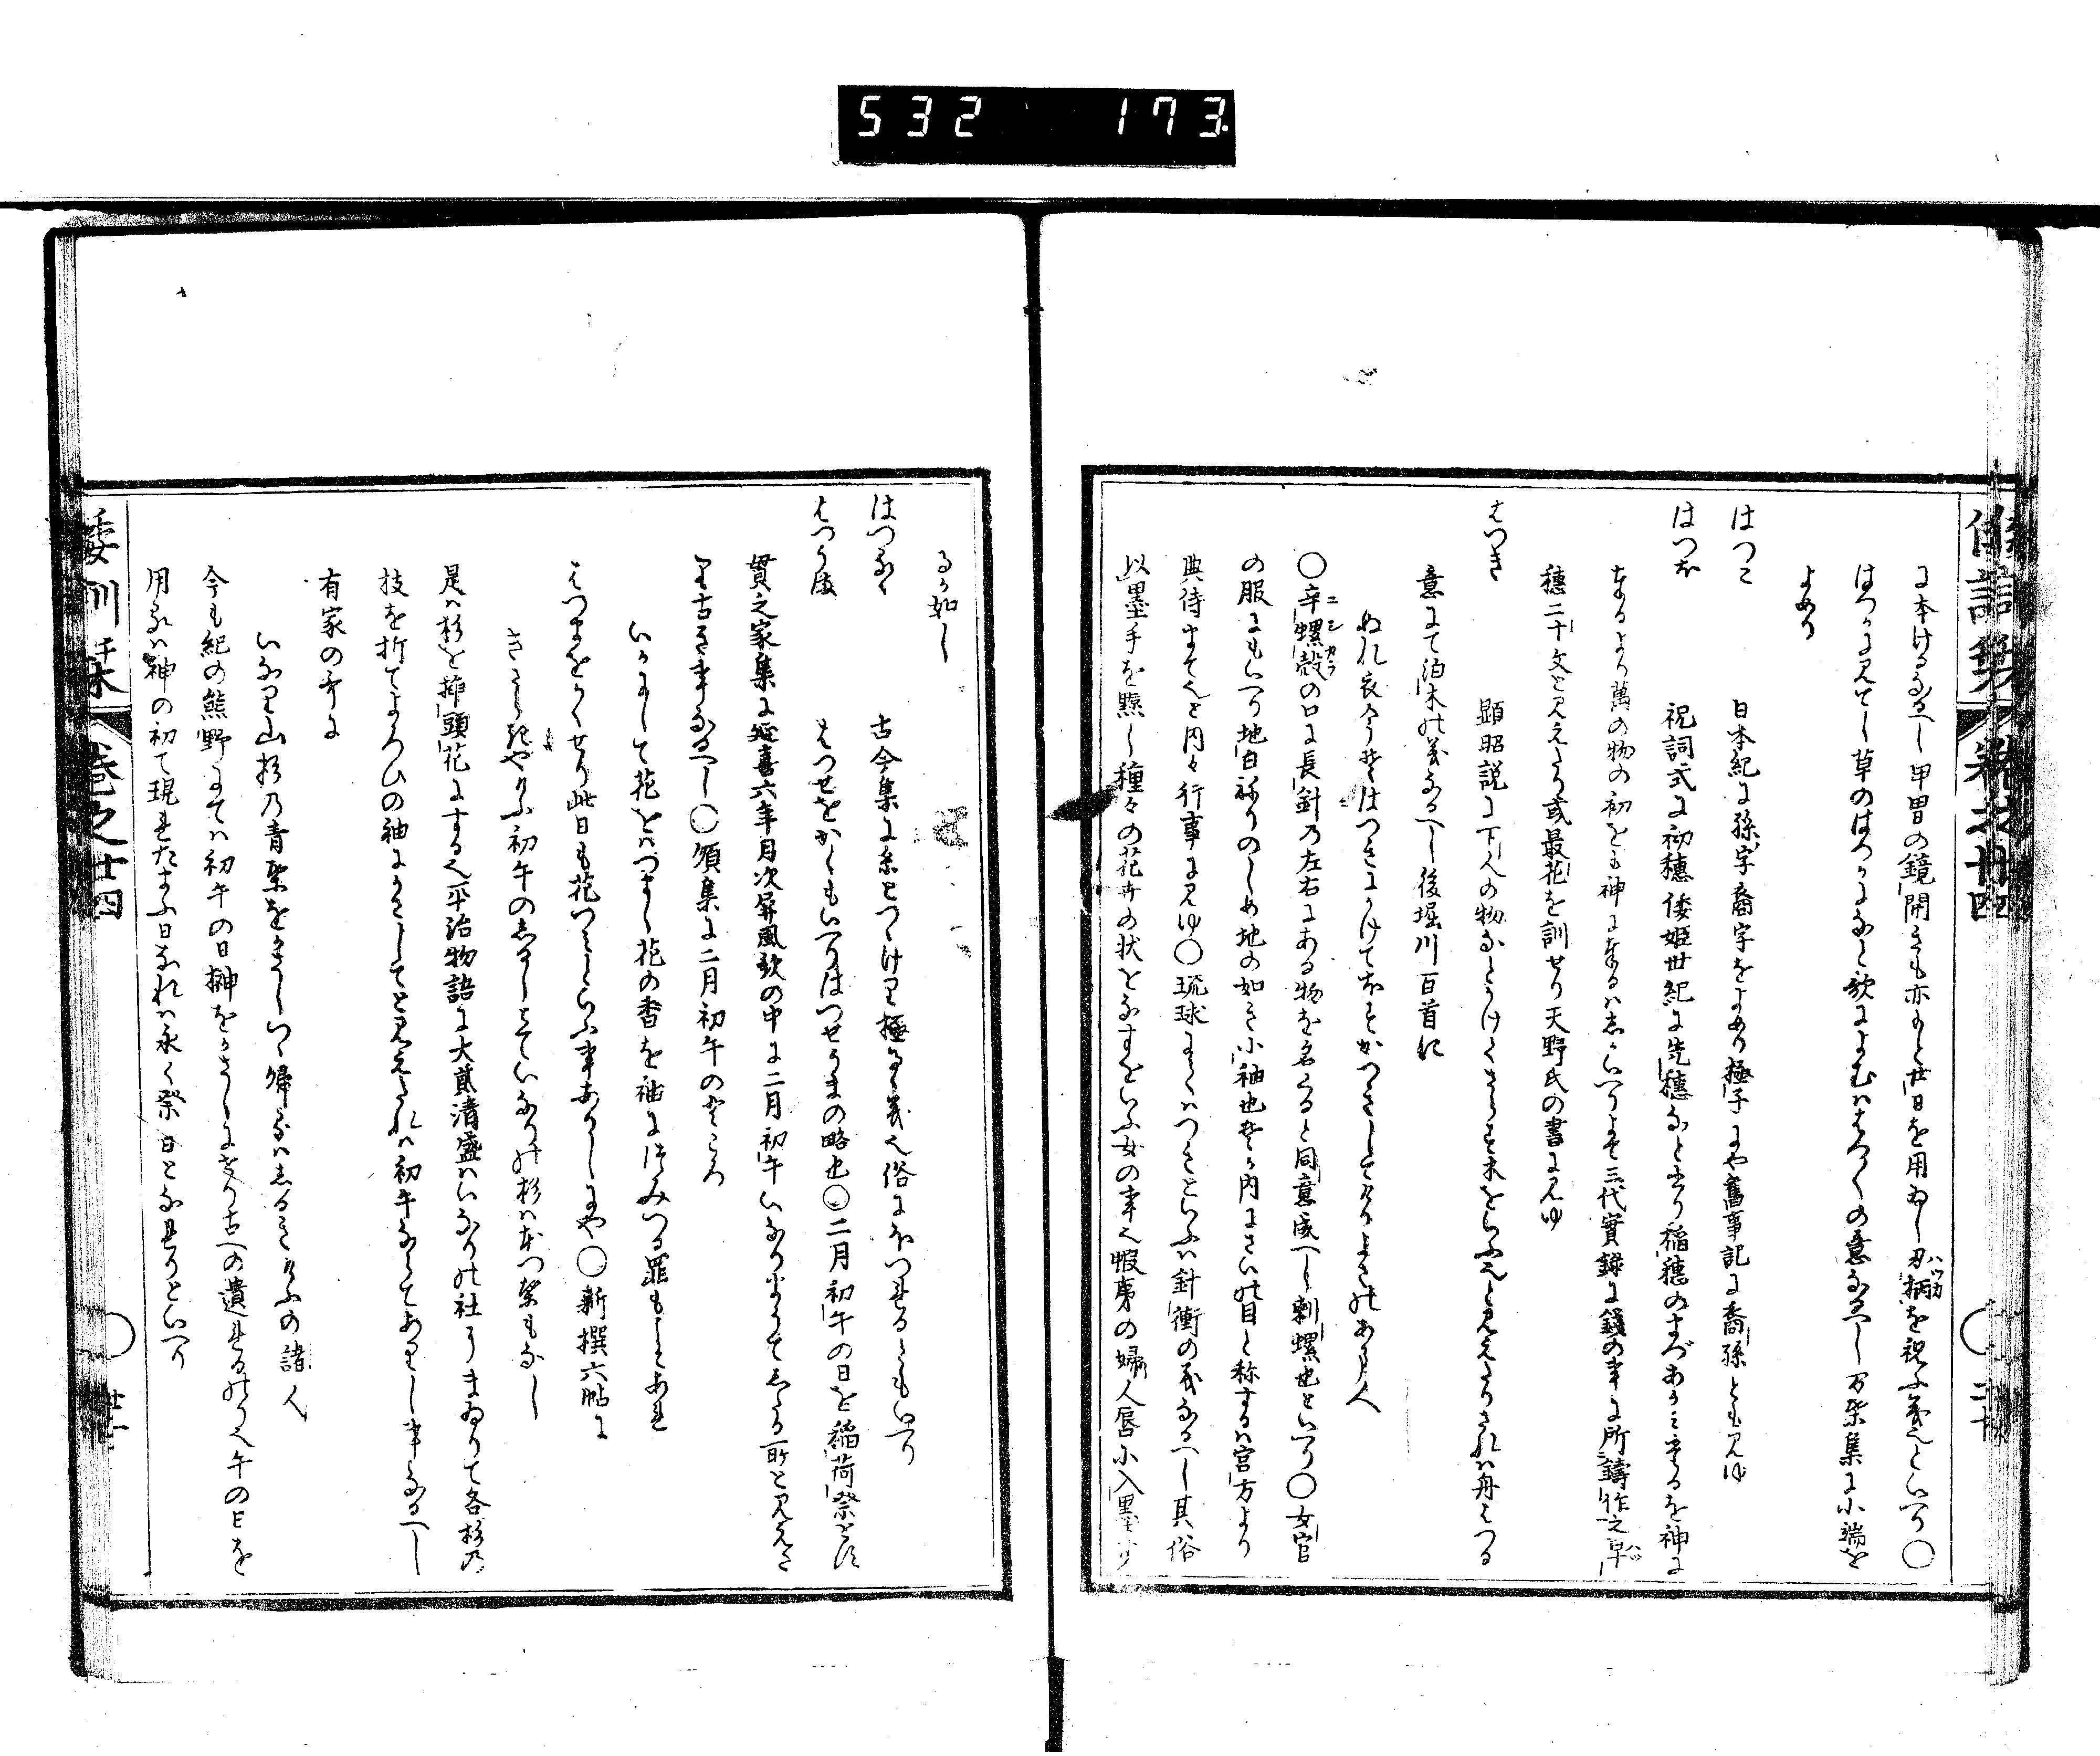 532 173
に本けるなるへし甲冑の鏡開きも亦もと廿日を用ゐし刃柄を祝ふ義也といへり〇
ハツカ
はつかに見てし草のはつかになと歌によむははつ〱の意なるへし万葉集に小端を
よめり
はつこ 日本紀に孫字裔字をよめり極子にや舊事記に裔孫ともみゆ
はつほ 祝詞式に初穗倭姫世紀に先穗なと出り稲穗のまづあかみたるを神に
奉るより萬の物の初をも神に奉るはしかいへりよて三代實錄に錢の事に所鑄作之早
ハツ
穗二十文と見えたり或最花を訓せり天野氏の書にみゆ
はつき 顯昭説に下人の物なとかけてさらす木をいふ也と見えたりされは舟はつる
意にて泊木の義なるへし後堀川百首に
ぬれ衣今そはつきにかけてほすかつきしてけりよさのあま人
〇辛螺殼の口に長針の左右にある物を名くると同意成へし刺螺也といへり〇女官
ニシカラ
の服にもいへり地白ねりのしめ地の如き小袖也そか内にさいの目と称するは宮方より
典侍まて也と内々行事にみゆ〇琉球にてはつきといふは針衝の義なるへし其俗
以墨手を黥し種々の花卉の状をなすをいふ女の事也蝦夷の婦人唇に入墨す
倭訓栞 巻之廿四
るか如し
はつなく 古今集に糸とつゝけり極なく義也俗にほつれるともいへり
はつうま はつせをかくもいへりはつせうまの略也〇二月初午の日を稲荷祭とす
貫之家集に延喜六年月次屏風歌の中に二月初午いなりまうてしたる所と見えた
り古き事なるへし〇頌集に二月初午のところ
いかにして花をはつまし花の香を袖につゝみつる罪もこそあれ
はつまをかくせり此日も花つみといふ事ありしにや〇新撰六帖に
きさらきやけふ初午のしるしとていなりの杉はもつ葉もなし
是は杉を挿頭花にする也平治物語に大貳清盛はいなりの社にまゐりて各杉の
枝を折てよろひの袖にかさしてと見えたれは初午ならてありし事なるへし
有家の哥に
いなり山杉の青葉をかさしつゝ帰るはしるきけふの諸人
今も紀の熊野にては初午の日榊をかさしにせり古への遺れるのり也午の日を
用るは神の初て現れたまふ日なれは永く祭日となれりといへり
倭訓栞 巻之廿四